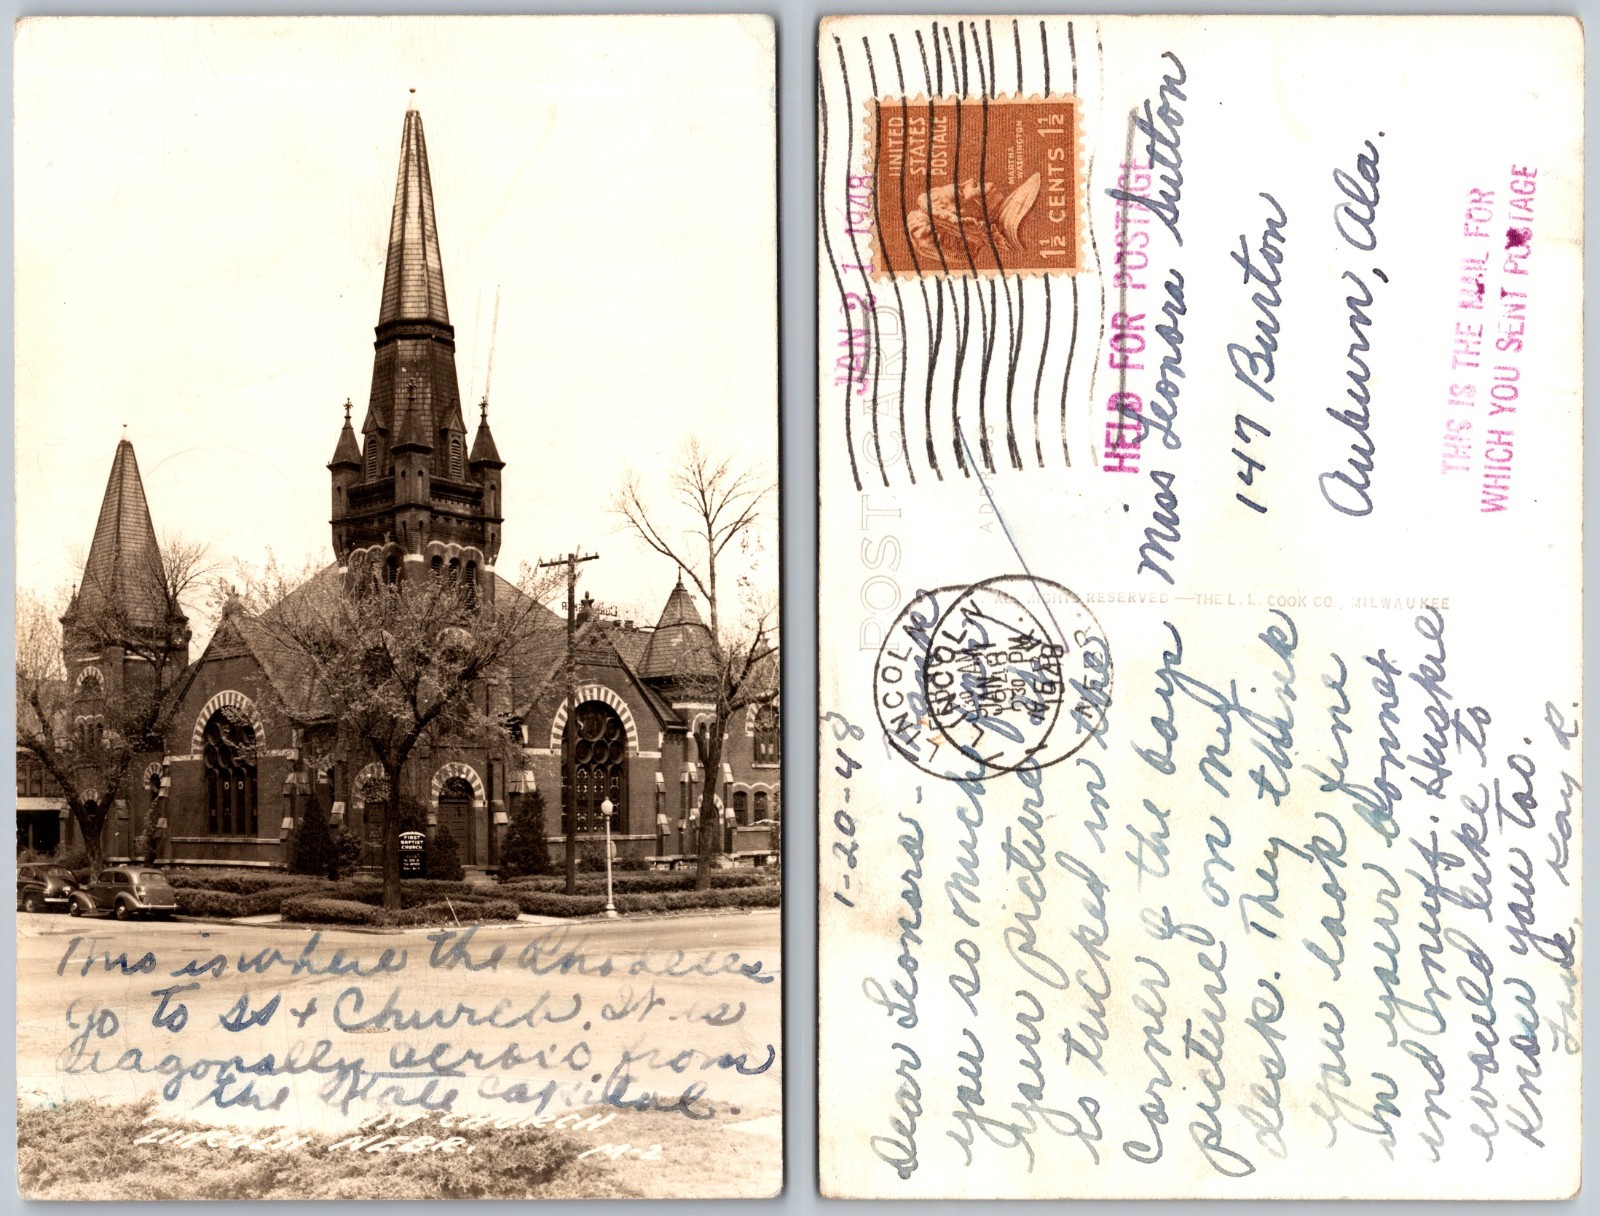 FIRST
BAPTIST
CHURCH
This is where the Rhodeses
go to SS + Church. It is
diagonally across from
the State Capitol.
IST CHURCH
LINCOLN NEBR.
M-2
POST CARD
ADDRESS
JAN 21 1948
UNITED
STATES
POSTAGE
MARTHA
WASHINGTON
1½ CENTS 1½
HELD FOR POSTAGE
Miss Leonora Sutton
147 Burton
Auburn, Ala.
THIS IS THE MAIL FOR
WHICH YOU SENT POSTAGE
ALL RIGHTS RESERVED — THE L. L. COOK CO., MILWAUKEE
LINCOLN
JAN
1948
NEBR.
LINCOLN
2 30 PM
1948
1-20-48
Dear Leonora - Thank
you so much for
your picture. It
is tucked in the
corner of the boys
picture on my
desk. They think
you look fine
in your bonnet
and muff. Huskie
would like to
know you too.
Kay R.